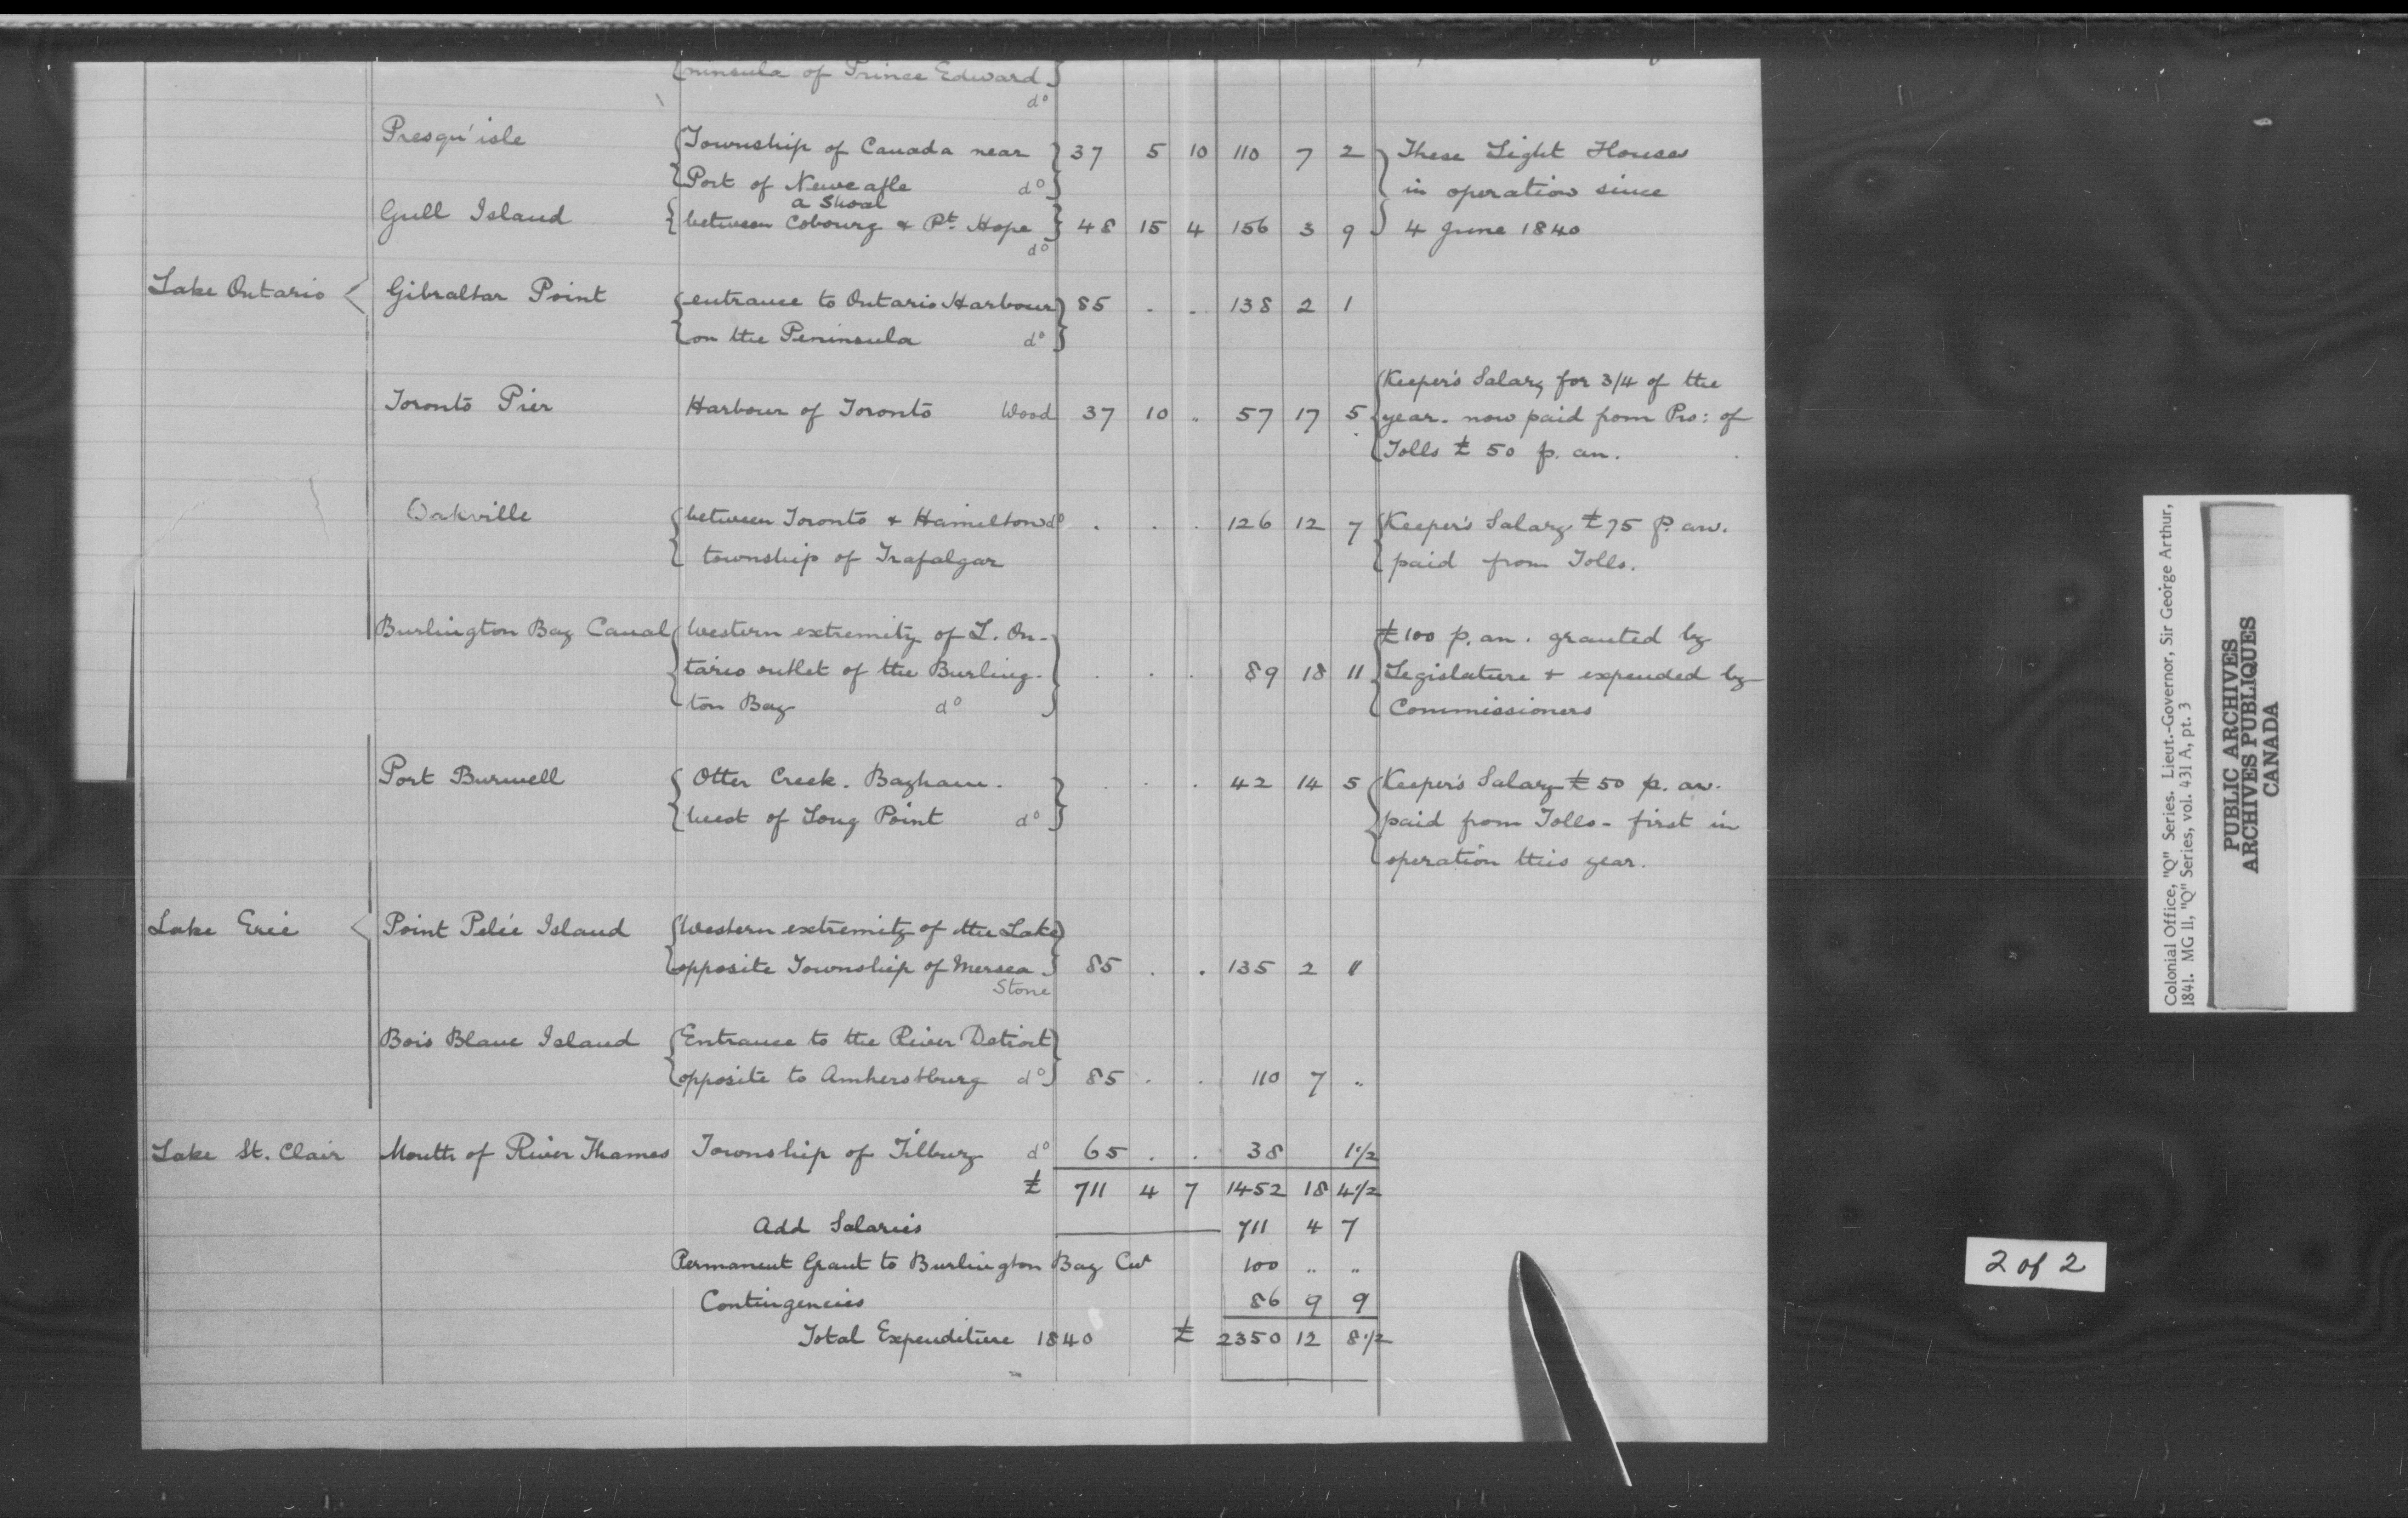 ninsula of Prince Edward
do
Presqu'isle Township of Canada near 37 5 10 110 7 2 These Light Houses
Port of Neweafle do in operation since
a Shoal
Gull Island between Cobourg & Pt. Hope 48 15 4 156 3 9 4 June 1840
do
Lake Ontario Gibraltar Point entrance to Ontario Harbour 85 . . 138 2 1
on the Peninsula do
Keeper's Salary for 3/4 of the
Toronto Pier Harbour of Toronto Wood 37 10 .. 57 17 5 year. now paid from Pro: of
Tolls £ 50 p. an.
Oakville between Toronto & Hamilton do . . . 126 12 7 Keeper's Salary £75 p. an.
township of Trafalgar paid from Tolls.
Burlington Bay Canal Western extremity of L. On- £100 p. an. granted by
tario outlet of the Burling- . . . 89 18 11 Legislature + expended by
ton Bay do Commissioners
Port Burwell Otter Creek. Bayham. . . . 42 14 5 Keeper's Salary £50 p. an.
West of Long Point do paid from Tolls - first in
operation this year.
Lake Erie Point Pelée Island Western extremity of the Lake
opposite Township of Mersea 85 . . 135 2 11
Stone
Bois Blanc Island Entrance to the River Detroit
opposite to Amherstburg do 85 . . 110 7 ..
Lake St. Clair Mouth of River Thames Township of Tilbury do 65 . . 38 1 1/2
£ 711 4 7 1452 18 4 1/2
Add Salaries 711 4 7
Permanent Grant to Burlington Bay Cut 100 .. ..
Contingencies 86 9 9
Total Expenditure 1840 £ 2350 12 8 1/2
Colonial Office, "Q" Series. Lieut.-Governor, Sir George Arthur,
1841. MG 11, "Q" Series, vol. 431 A, pt. 3
PUBLIC ARCHIVES
ARCHIVES PUBLIQUES
CANADA
2 of 2